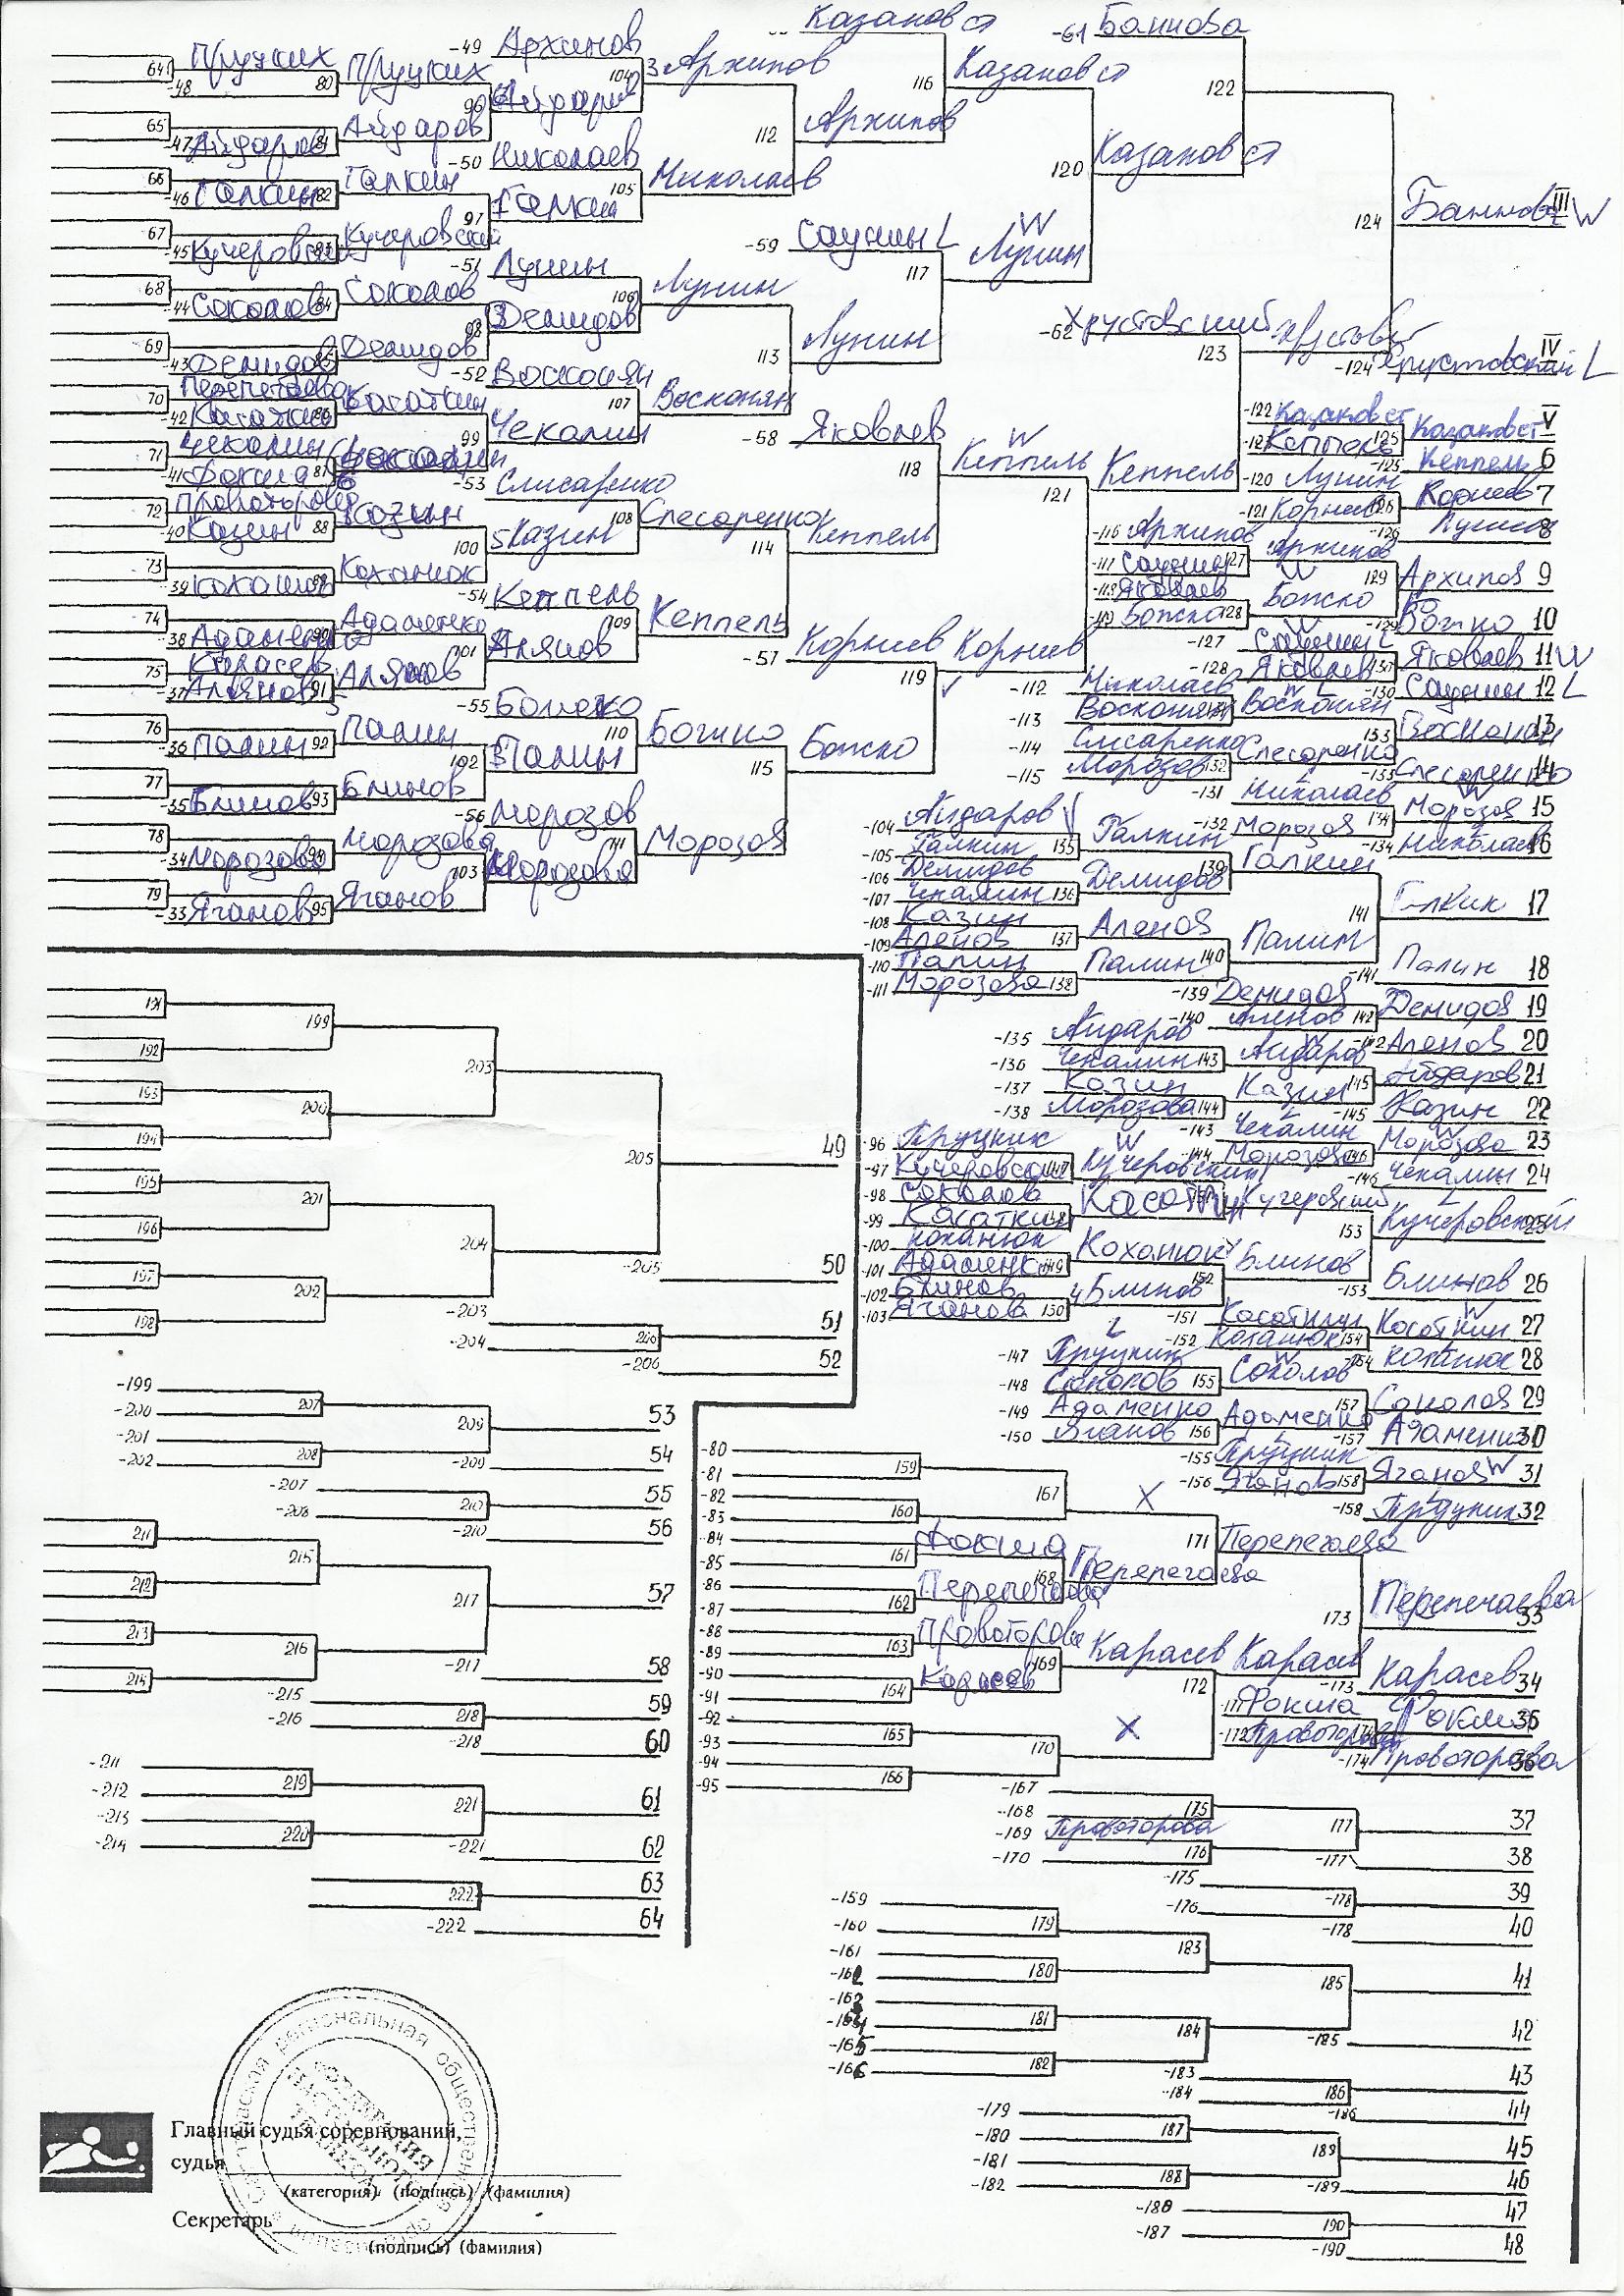 Казанов ст
-61 Баннова
-49 Архипов
64 Пруцких
-48
80 Пруцких
104 Архипов
116 Казанов ст
122
96 Айдаров
65
-47 Айдаров
81 Айдаров
112 Архипов
-50 Николаев
66
-46 Галкин
82 Галкин
105 Николаев
120 Казанов ст
97 Галкин
124 Баннова III W
67
-45 Кучеровский
83 Кучеровский
-59 Саунин L
117 Лунин W
-51 Лунин
68
-44 Соколов
84 Соколов
106 Лунин
98 Демидов
-62 Хрустовский
123 Хрустовский
69
-43 Демидов
85 Демидов
113 Лунин
-124 Хрустовский IV L
-52 Восконян
70 Перепечаева
-42 Касаткин
86 Касаткин
107 Восконян
-122 Казанов ст
-123 Кеппель
125 Казанов ст V
99 Чекалин
-58 Яковлев
118 Кеппель W
121 Кеппель
-125 Кеппель 6
71 Чекалин
-41 Фокша
87 Чекалин
-53 Слисаренко
-120 Лунин
-121 Корнев
126 Корнев 7
-126 Лунин 8
72 Провоторова
-40 Казин
88 Казин
108 Слесаренко
100 Казин
114 Кеппель
-116 Архипов
-117 Саунин
127 Архипов
129 Архипов 9
73
-39 Коханюк
89 Коханюк
-54 Кеппель
-118 Яковлев
-119 Божко
128 Божко W
-129 Божко 10
74
-38 Адаменко
90 Адаменко
109 Кеппель
101 Алянов
-127 Саунин L
-128 Яковлев W
130 Яковлев 11 W
-130 Саунин 12 L
75 Карасев
-37 Алянов
91 Алянов
-57 Корнев
119 Корнев
-112 Николаев
-113 Восконян
131 Восконян
133 Восконян 13
-55 Божко
76
-36 Палин
92 Палин
110 Божко
102 Палин
115 Божко
-114 Слисаренко
-115 Морозов
132 Слесаренко
-133 Слесаренко 14
77
-35 Блинов
93 Блинов
-56 Морозов
-131 Николаев L
-132 Морозов
134 Морозов 15 W
-134 Николаев 16 L
78
-34 Морозова
94 Морозова
111 Морозов
103 Морозова
-104 Айдаров
-105 Галкин
135 Галкин
139 Галкин
-106 Демидов
-107 Чекалин
136 Демидов
79
-33 Яганов
95 Яганов
-108 Казин
-109 Аленов
137 Аленов
141 Галкин 17
-110 Палин
-111 Морозова
138 Палин
140 Палин
-141 Палин 18
-139 Демидов
-140 Аленов
142 Демидов 19
-142 Аленов 20
-135 Айдаров
-136 Чекалин
143 Айдаров W
145 Айдаров 21
-137 Казин
-138 Морозова
144 Казин L
-145 Казин 22
-143 Чекалин
-144 Морозова
146 Морозова 23 W
-146 Чекалин 24 L
-96 Пруцких
-97 Кучеровский
147 Кучеровский W
151 Кучеровский
153 Кучеровский 25
-98 Соколов
-99 Касаткин
148 Касаткин
-100 Коханюк
-101 Адаменко
149 Коханюк
152 Блинов
-153 Блинов 26
-102 Блинов
-103 Яганова
150 Блинов
-151 Касаткин
-152 Коханюк
154 Касаткин 27 W
-154 Коханюк 28
-147 Пруцких L
-148 Соколов
155 Соколов W
157 Соколов 29
-149 Адаменко
-150 Яганов
156 Адаменко L
-157 Адаменко 30
-155 Пруцких
-156 Яганов
158 Яганов 31 W
-158 Пруцких 32
191
192
199
203
193
194
200
205
49
195
196
201
204
197
198
202
-205
50
-203
-204
206
51
-206
52
-199
-200
207
209
53
-201
-202
208
-209
54
-207
-208
210
55
-210
56
211
212
215
217
57
213
214
216
-217
58
-215
-216
218
59
-218
60
-211
-212
219
221
61
-213
-214
220
-221
62
222
63
-222
64
-80
-81
159
167
X
-82
-83
160
171 Перепечаева
-84
-85
161 Фокша
168 Перепечаева
-86
-87
162 Перепечаева
173 Перепечаева 33
-88
-89
163 Провоторова
169 Карасев
-90
-91
164 Карасев
172 Карасев
-173 Карасев 34
-92
-93
165
170
X
-94
-95
166
-171 Фокша
-172 Провоторова
174 Фокша 35
-174 Провоторова 36
-167
-168
175
177
37
-169 Провоторова
-170
176
-177
38
-175
-176
178
39
-178
40
-159
-160
179
183
185
41
-161
-162
180
-163
-164
181
184
-185
42
-165
-166
182
-183
-184
186
43
-186
44
-179
-180
187
189
45
-181
-182
188
-189
46
-188
-187
190
47
-190
48
Главный судья соревнований,
судья
(категория) (подпись) (фамилия)
Секретарь
(подпись) (фамилия)
региональная общественная